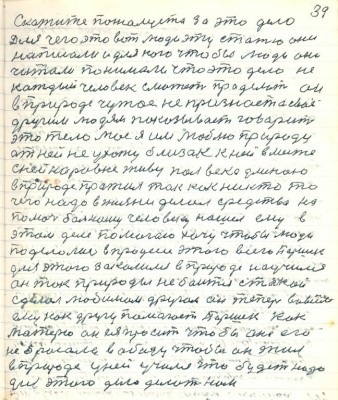 39
Скажите пожалуста за это дело
Для чего это вот люди эту статью они
написали и для кого чтобы люди они
читали понимали что это дело не
каждый человек сможет проделит он
в природе чужое не признает а своё
другим людям показывает говорит
это тело мое я им люблю природу
от ней не ухожу близак к ней вместе
с ней наровне живу пол века длиною
в природе прожил так как никто то
чего надо в жизни делал средства на
помоч больному человеку нашел ему в
этом деле помогаю хочу чтобы люди
поделолис в процесе этого всего Паршек
для этого закалился в природе научился
он ток природы не баится с такой
сделал любимым другом он тепер
ему как другу помагает Паршек как
Матерю он ея просит чтобы она его
не бросала в обиду чтобы он жил
в природе у ней учился это будет надо
для этого дело делат нам